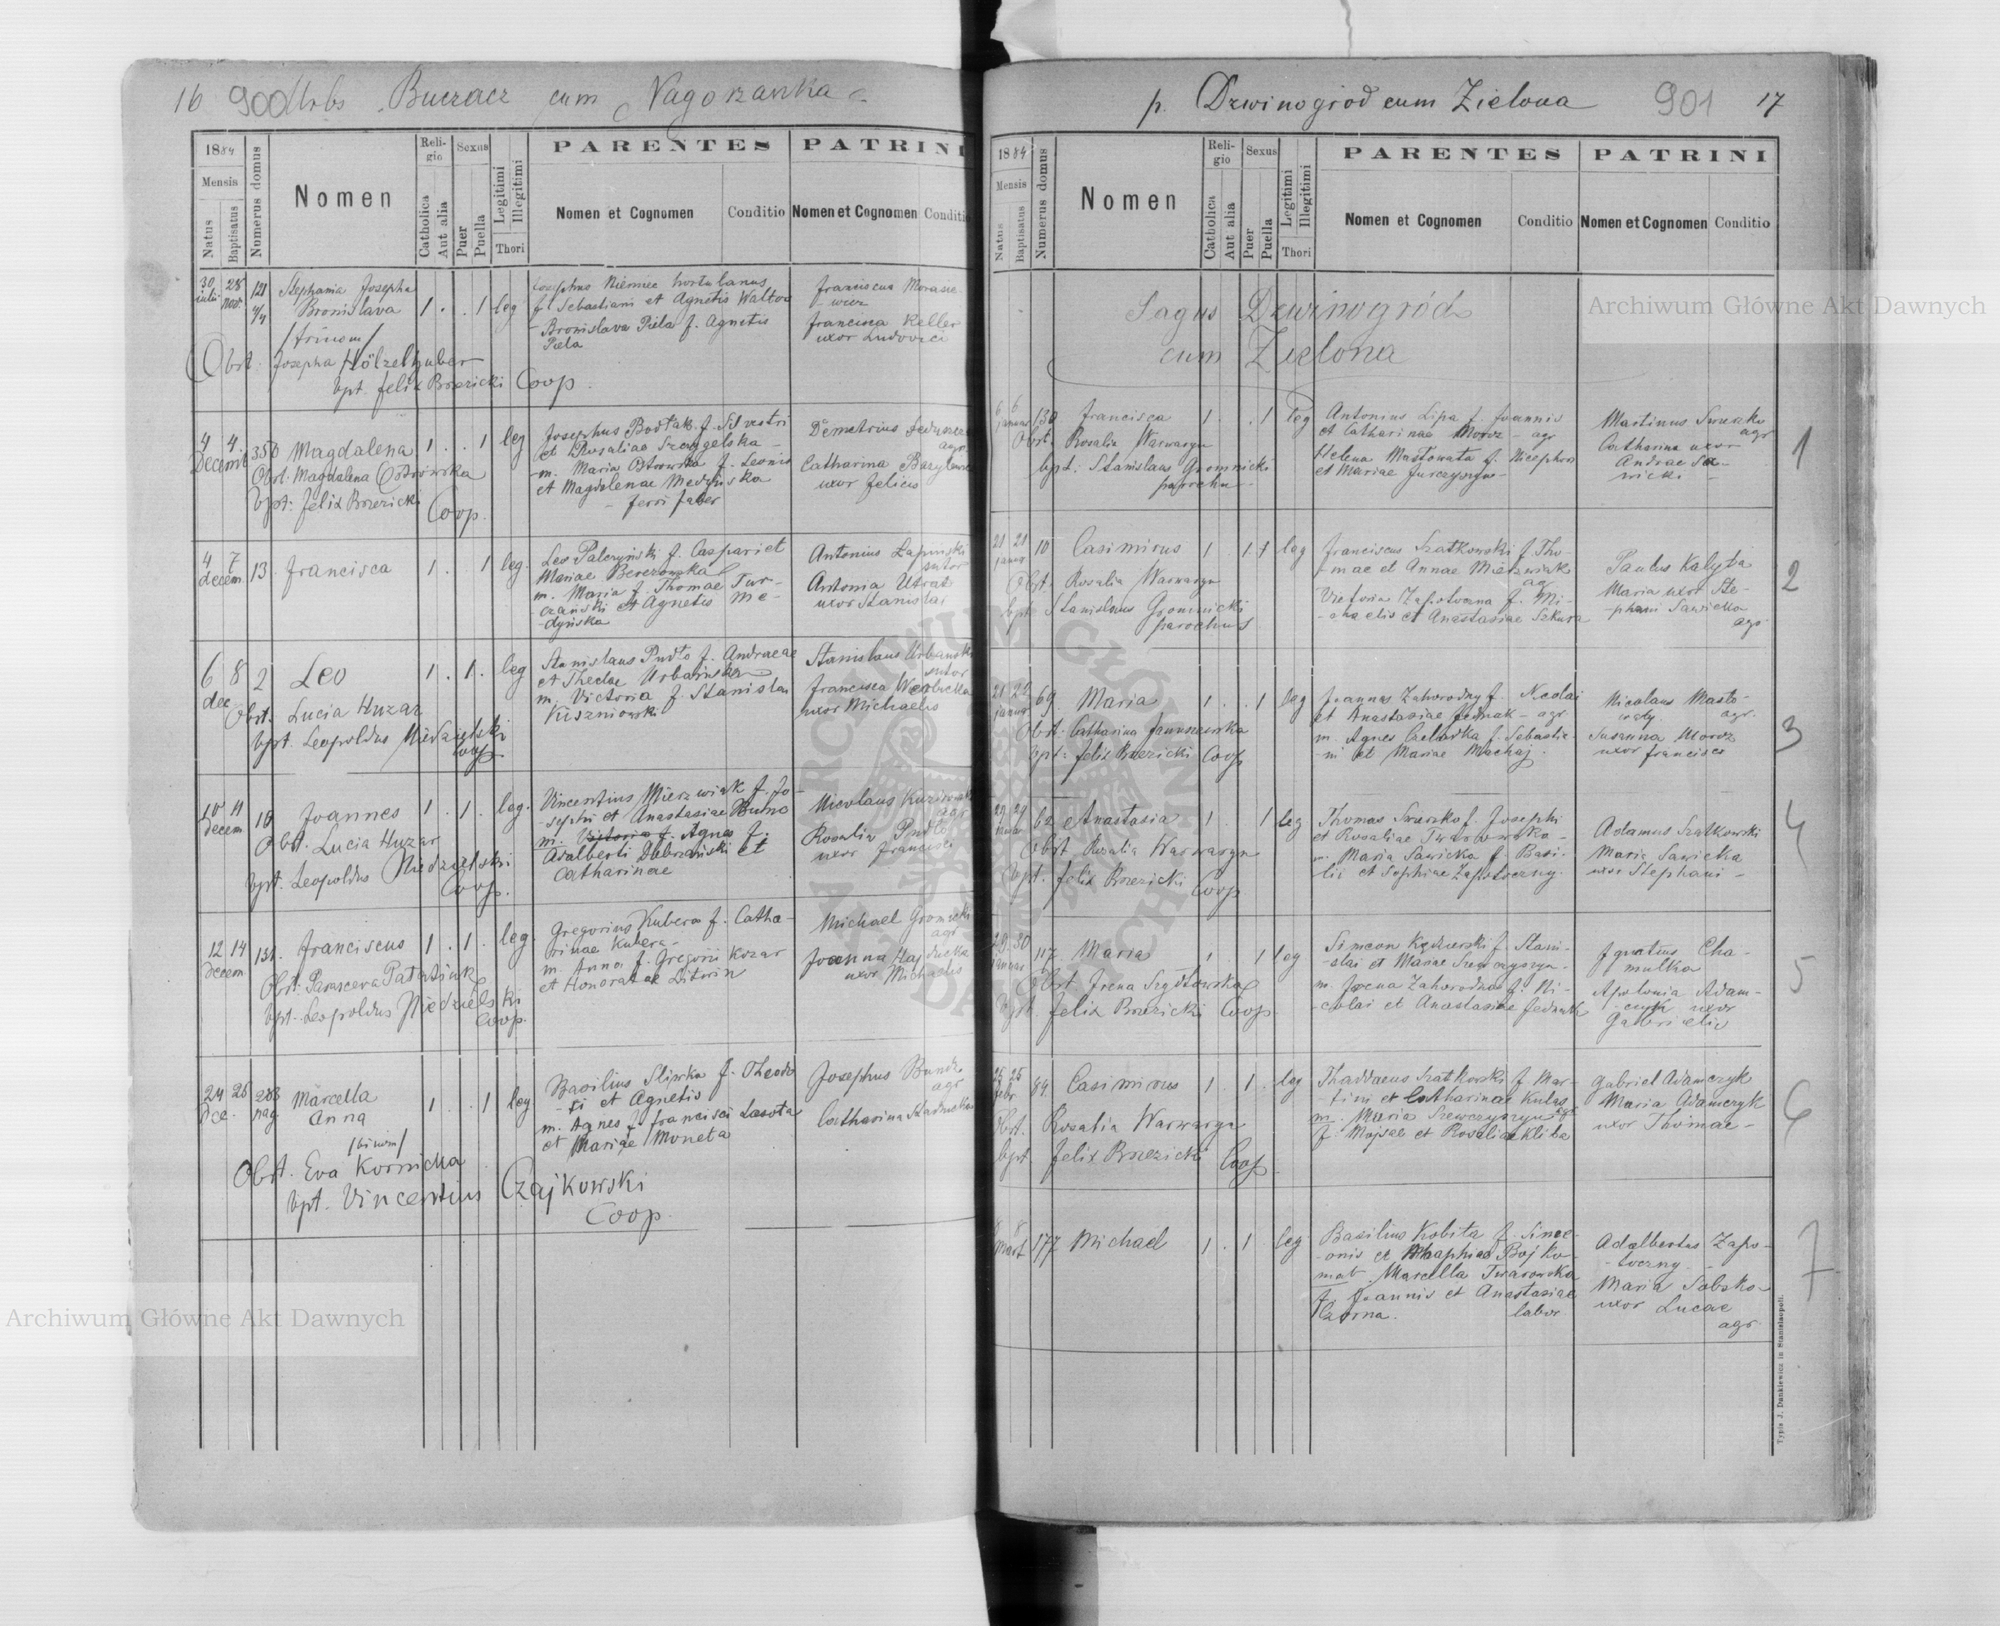 16 900 Urbs Buczacz cum Nagorzanka
1884
Mensis
Natus
Baptisatus
Numerus domus
Nomen
Religio
Catholica
Aut alia
Sexus
Puer
Puella
Legitimi
Illegitimi
Thori
PARENTES
Nomen et Cognomen
Conditio
PATRINI
Nomen et Cognomen
Conditio
30 28 121 Stephania Josepha
iulii nov.
Bronislava 1 . . 1 leg
/trinom/
Josephus Niemiec hortulanus
f. Sebastiani et Agnetis
Bronislava Piela f. Agnetis
Piela
Franciscus
Francisca Keller
uxor Ludovici
Obst. Josepha Hölzelhuber
bpt. Felix Brzezicki Coop.
4 4. 350 Magdalena 1 . . 1 leg
Decemb
Obst. Magdalena Ostrowska
bpt: Felix Brzezicki Coop.
Josephus Bodłak f. Silvestri
et Rosaliae
m. Maria Ostrowska f. Leonis
et Magdalenae
ferri faber
Demetrius
agr
Catharina
uxor Felicis
4 7 13. Francisca 1 . . 1 leg.
decem.
Leo Palczyński f. Caspari et
Mariae Berezowska
m. Maria f. Thomae Tur-
czański et Agnetis Me-
dyńska
Antonius Łapiński
sutor
Antonia
uxor Stanislai
6 8 2 Leo 1 . 1 . leg
dec
Obst. Lucia Huzar
bpt. Leopoldus Niedzielski
coop.
Stanislaus Pudło f. Andreae
et Theclae Urbańska
m. Victoria f. Stanislai
Kuszniowski
Stanislaus Urbański
sutor
Francisca
uxor Michaelis
10 11 16 Joannes 1 . 1 . leg.
decem
Obst. Lucia Huzar
bpt. Leopoldus Niedzielski
Coop.
Vincentius Mierzwiak f. Jo-
sephi et Anastasiae
m. Victoria f. Agnes f.
Adalberti Dobrzański et
Catharinae
Nicolaus
agr
Rosalia Pudło
uxor Francisci
12 14 131. Franciscus 1 . 1 . leg.
decem
Obst. Parasceva
bpt. Leopoldus Niedzielski
Coop.
Gregorius Kubera f. Catha-
rinae Kubera
m. Anna f. Gregorii Kozar
et Honoratae
Michael
agr
Joanna
uxor Michaelis
24 25 288 Marcella
Dce. nag Anna 1 . . 1 leg
/binom/
Obst. Eva Kornicka
bpt. Vincentius Czajkowski
Coop.
Basilius Sliwka f. Theodo-
ri et Agnetis
m. Agnes f. Francisci Lasota
et Mariae Moneta
Josephus
agr
Catharina
p. Dzwinogród cum Zielona 901 17
1884
Mensis
Natus
Baptisatus
Numerus domus
Nomen
Religio
Catholica
Aut alia
Sexus
Puer
Puella
Legitimi
Illegitimi
Thori
PARENTES
Nomen et Cognomen
Conditio
PATRINI
Nomen et Cognomen
Conditio
Pagus Dzwinogród
cum Zielona
6 6 130 Francisca 1 . . 1 leg
januar
Obst. Rosalia Warwaryn
bpt. Stanislaus Gromnicki
parochus
Antonius Lipa f. Joannis
et Catharinae Moroz - agr
Helena f. Nicephori
et Mariae Jurczyszyn
Martinus
agr
Catharina uxor
Andreae Sa-
wicki
1
21 21 10 Casimirus 1 . 1 leg
januar
Obst. Rosalia Warwaryn
bpt. Stanislaus Gromnicki
parochus
Franciscus Szatkowski f. Tho-
mae et Annae Mierzwiak
agr
Victoria Zapotoczna f. Mi-
chaelis et Anastasiae Szkura
Paulus Kalyta
Maria uxor Ste-
phani Sawicka
agr
2
21 22 69 Maria 1 . . 1 leg
januar
Obst. Catharina
bpt: Felix Brzezicki Coop
Joannes Zahorodny f. Nicolai
et Anastasiae Jednak - agr
m. Agnes f. Sebastia-
ni et Mariae Machaj.
Nicolaus
agr.
Susanna Moroz
uxor Francisci
3
29 29 62 Anastasia 1 . 1 leg
Obst Rosalia Warwaryn
bpt. Felix Brzezicki Coop
Thomas f. Josephi
et Rosaliae Twarowska
m. Maria Sawicka f. Basi-
lii et Sophiae Zapotoczny.
Adamus Szatkowski
Maria Sawicka
uxor Stephani
4
29 30 117 Maria 1 . 1 leg
januar
Obst Irena Szydłowska
bpt. Felix Brzezicki Coop
Simeon f. Stani-
slai et Mariae Szewczyszyn
m. Zahorodna f. Ni-
colai et Anastasiae Jednak
Ignatius Cha-
mulka
Apolonia Adam-
czyk uxor
Gabrielis
5
25 25 84 Casimirus 1 . 1 . leg
febr
Obst. Rosalia Warwaryn
bpt. Felix Brzezicki Coop
Thaddaeus Szatkowski f. Mar-
tini et Catharinae Kulas
m. Maria Szewczyszyn agr
f. Mojsae et Rosaliae Kliba
Gabriel Adamczyk
Maria Adamczyk
uxor Thomae
6
8 8 177 Michael 1 . 1 leg
Mart
Basilius Kobita f. Sime-
onis et Bojko
mat. Marcella Twarowska
f. Joannis et Anastasiae
Czorna. labor
Adalbertus Zapo-
toczny
Maria Sobsko
uxor Lucae
agr
7
Typis J. Dankiewicz in Stanislaopoli.
Archiwum Główne Akt Dawnych
Archiwum Główne Akt Dawnych
ARCHIWUM GŁÓWNE AKT DAWNYCH